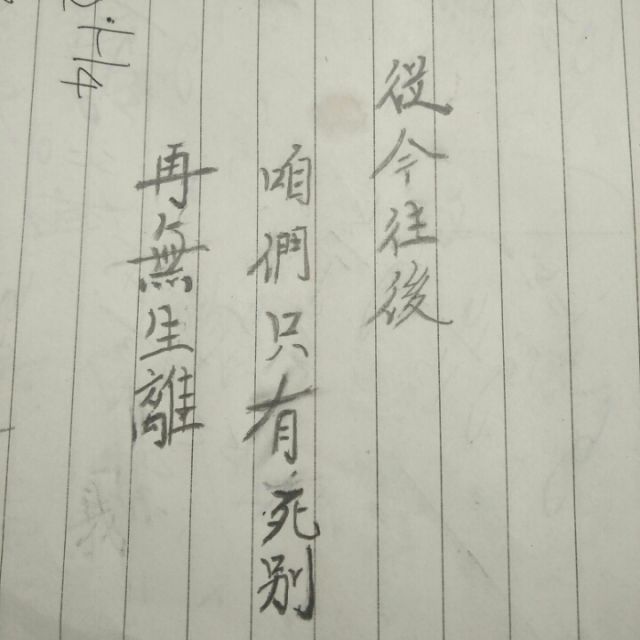 從今往後
咱們只有死別
再無生離